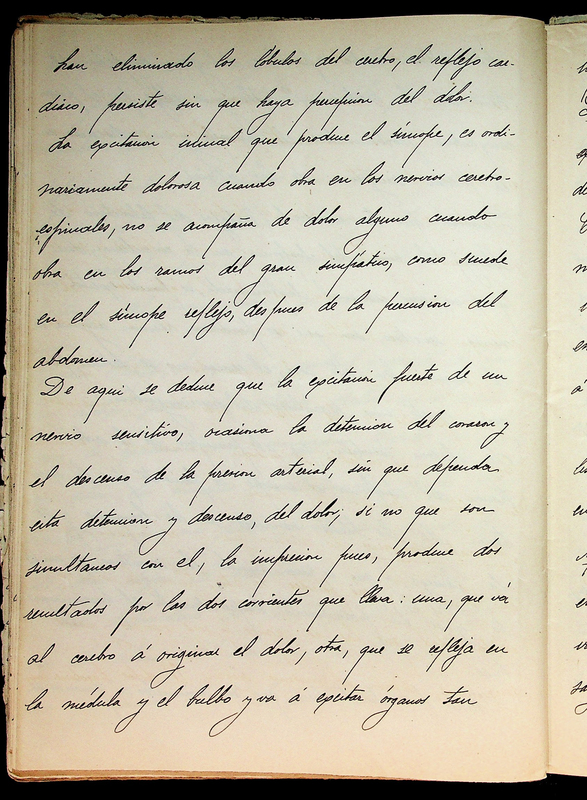 han eliminado los lóbulos del cerebro, el reflejo car-
diaco, persiste sin que haya percepcion del dolor.
La excitacion inicial que produce el síncope, es ordi-
nariamente dolorosa cuando obra en los nervios cerebro-
espinales, no se acompaña de dolor alguno cuando
obra en los ramos del gran simpático, como sucede
en el síncope reflejo, despues de la percusion del
abdomen.
De aqui se deduce que la excitacion fuerte de un
nervio sensitivo, ocasiona la detencion del corazon y
el descenso de la presion arterial, sin que dependa
esta detencion y descenso, del dolor, si no que son
simultaneos con el, la impresion pues, produce dos
resultados por las dos corrientes que lleva: una, que vá
al cerebro á originar el dolor, otra, que se refleja en
la médula y el bulbo y va á excitar órganos tan